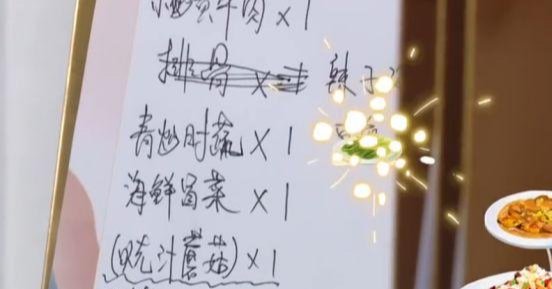 牛肉×1
排骨×1 辣子
青炒时蔬×1
海鲜冒菜×1
(鲍汁蘑菇)×1